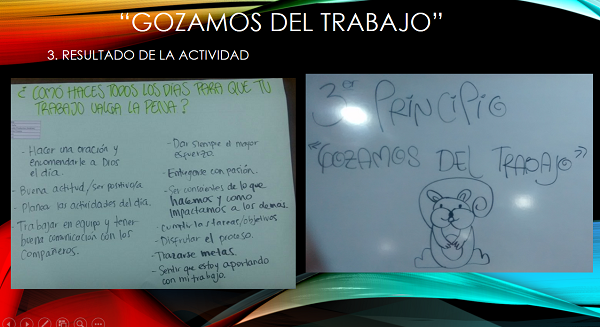 “GOZAMOS DEL TRABAJO”
3. RESULTADO DE LA ACTIVIDAD
¿ COMÓ HACES TODOS LOS DÍAS PARA QUE TU
TRABAJO VALGA LA PENA ?
- Hacer una oración y
encomendarle a Dios
el día.
- Buena actitud / ser positivo/a
- Planea las actividades del día.
- Trabajar en equipo y tener
buena comunicación con los
compañeros.
- Dar siempre el mayor
esfuerzo.
- Entregarse con pasión.
- Ser conscientes de lo que
hacemos y como
impactamos a los demas.
- cumplir las tareas/objetivos
- Disfrutar el proceso.
- Trazarse metas.
- Sentir que estoy aportando
con mi trabajo.
3er PRINCIPIO
"GOZAMOS DEL TRABAJO"